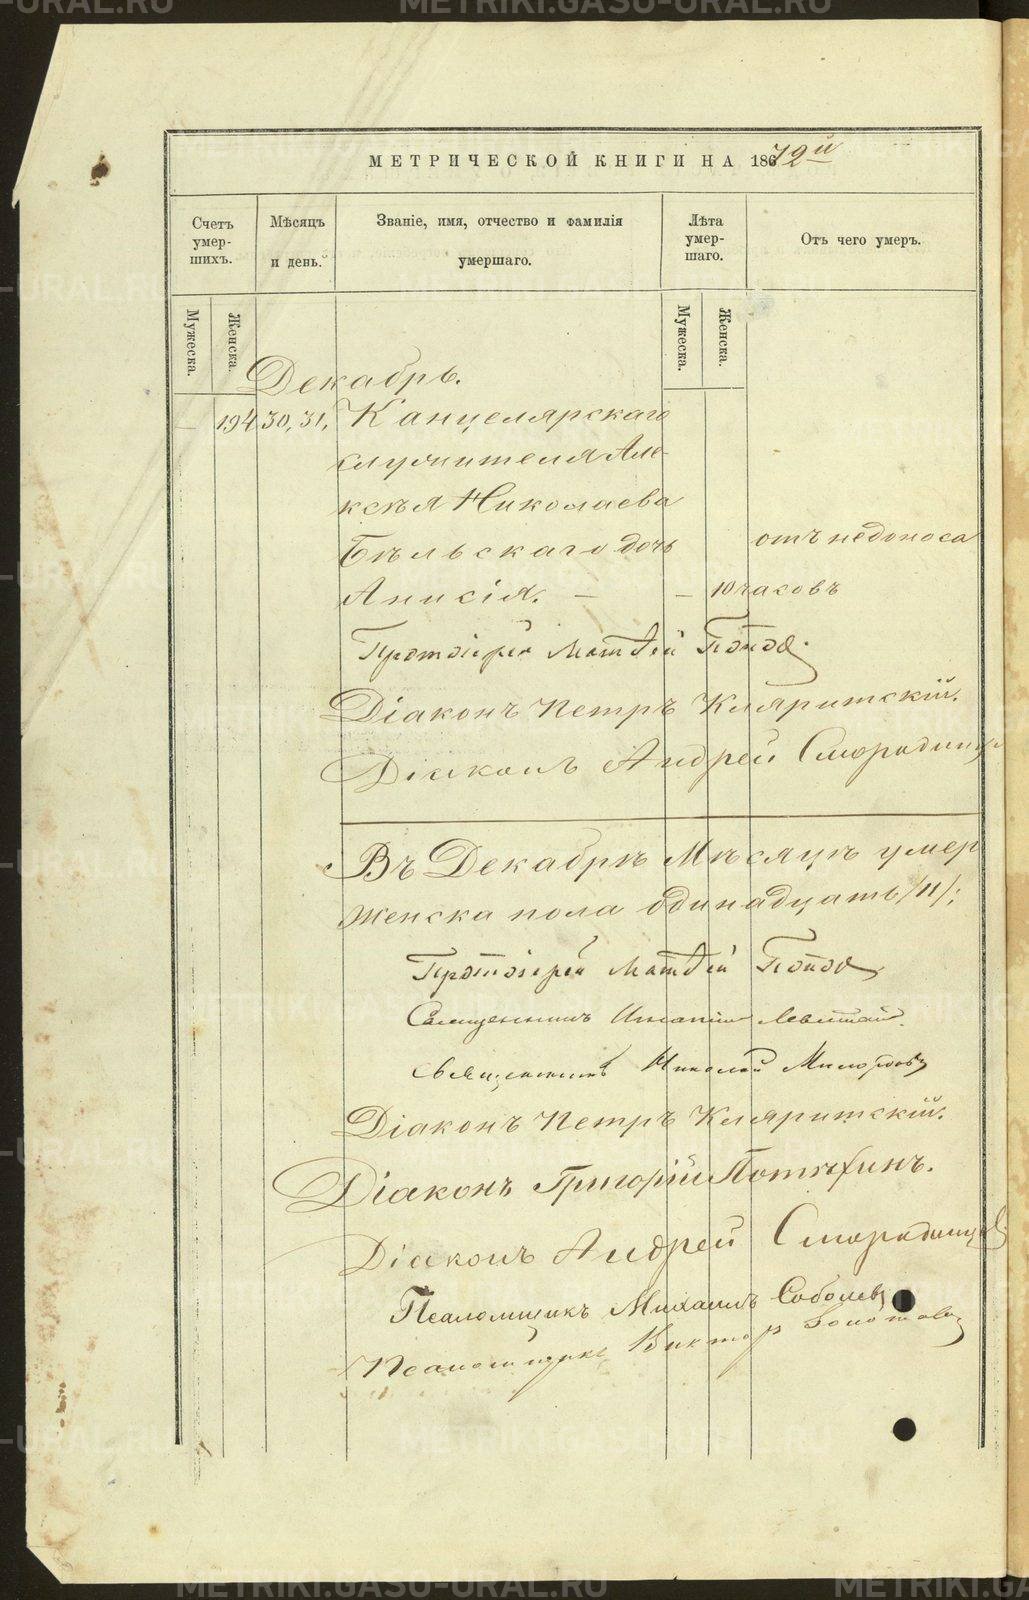 МЕТРИЧЕСКОЙ КНИГИ НА 1872й
Счетъ умер-шихъ.
Мѣсяцъ и день.
Званіе, имя, отчество и фамилія умершаго.
Лѣта умер-шаго.
Отъ чего умеръ.
Мужеска.
Женска.
Мужеска.
Женска.
Декабрь.
— 194 30, 31, Канцелярскаго
служителя Але-
ксѣя Николаева
Бѣльскаго дочь
отъ недоноса
Анисія. — — 10 часовъ
Протоіерей Матѳей Поповъ.
Діаконъ Петръ Кляритскій.
Діаконъ Андрей Смородинцевъ
Въ Декабрѣ Мѣсяцѣ умер
Женска пола одинадцать /11/;
Протоіерей Матѳей Поповъ
Священникъ Игнатій Левитскій.
Священникъ Николай
Діаконъ Петръ Кляритскій.
Діаконъ Григорій Потѣхинъ.
Діаконъ Андрей Смородинцевъ
Псаломщикъ Михаилъ Соболевъ
Псаломщикъ Викторъ
METRIKI.GASU-URAL.RU